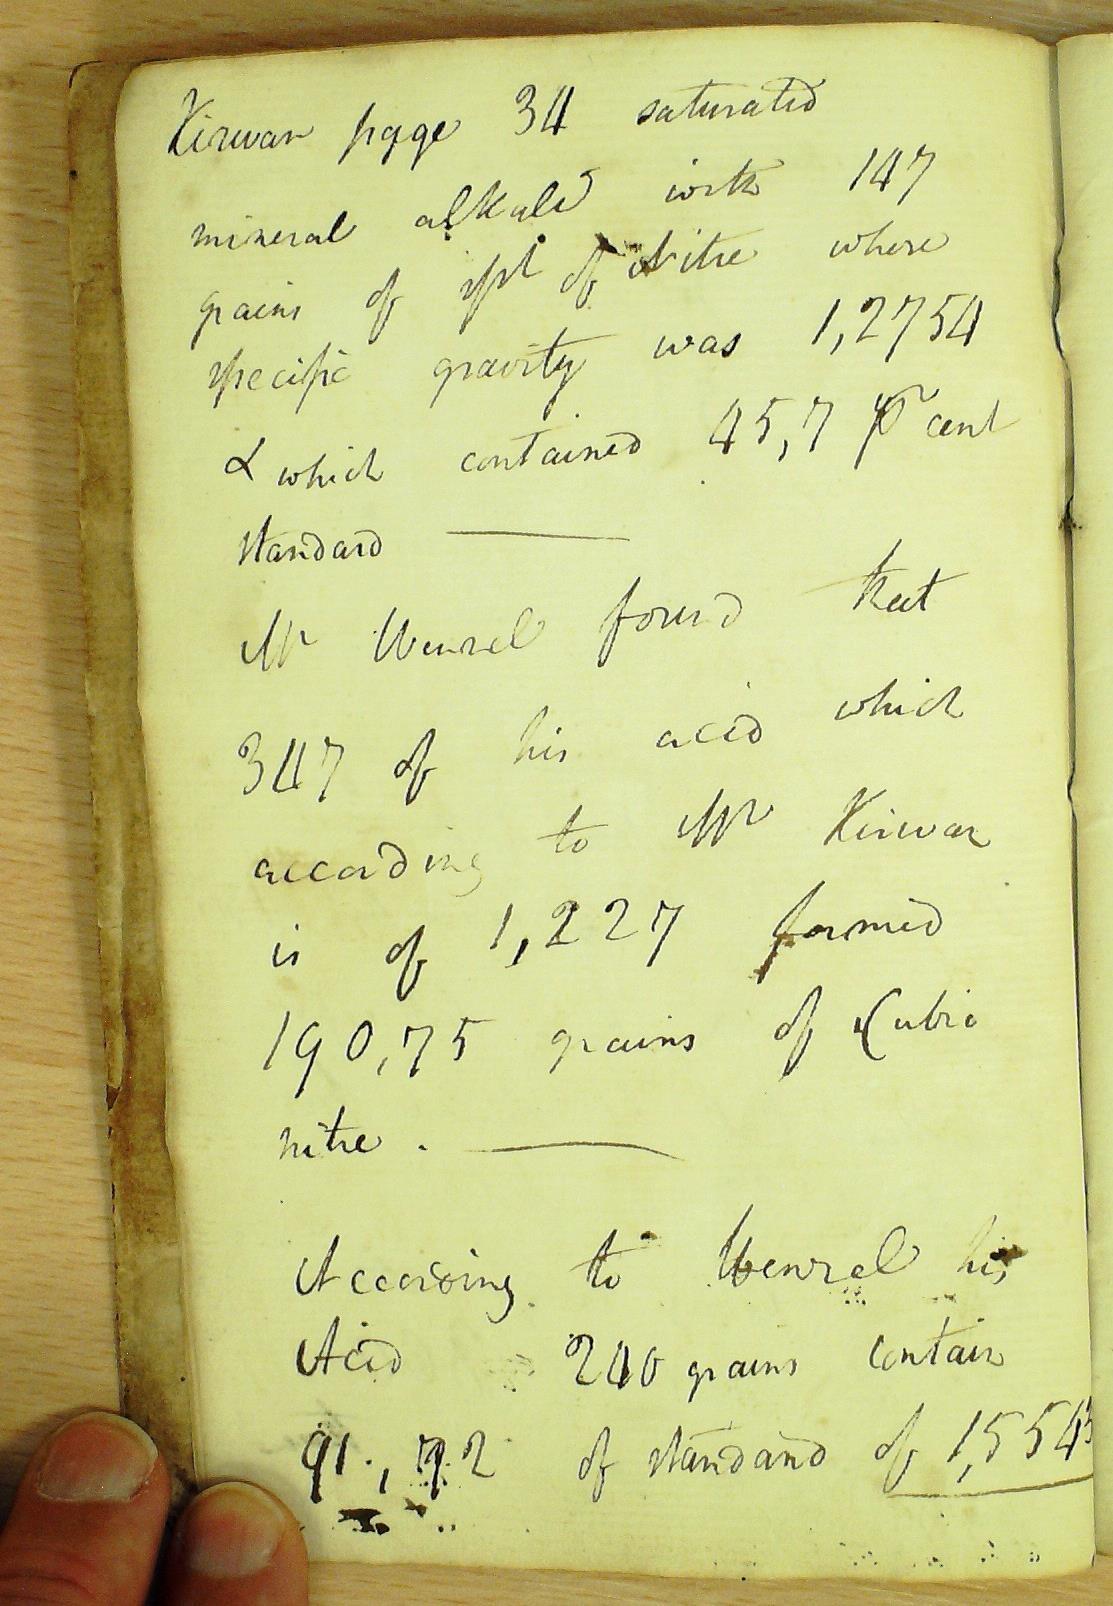 Kirwan page 34 saturated
mineral alkali with 147
grains of spt of Nitre whose
specific gravity was 1,2754
& which contained 45,7 pr cent
standard ———
Mr Wenzel found that
347 of his acid which
according to Mr Kirwan
is of 1,227 formed
190,75 grains of Cubic
nitre . ———
According to Wenzel his
Acid 240 grains contain
91.,72 of standard of 1,5543